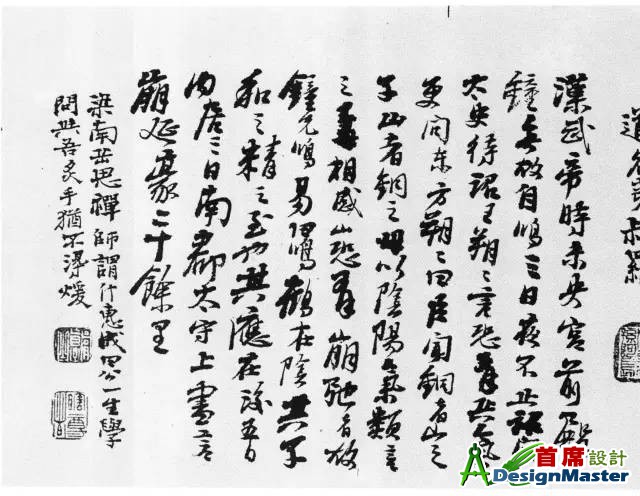 漢武帝時未央宮前殿
鐘無故自鳴三日夜不止詔
太史待詔王朔〻言恐有兵氣
更問東方朔〻曰臣聞銅者山之
子山者銅之母以陰陽氣類言
之母相感山恐有崩弛者故
鐘先鳴易曰鳴鶴在陰其子
和之精之至也其應在後五日
內居三日南郡太守上書言
崩延袤二十餘里
梁南岳思禪師謂什惠成曰公一生學
問與吾炙手猶不得煖
首席設計
DesignMaster